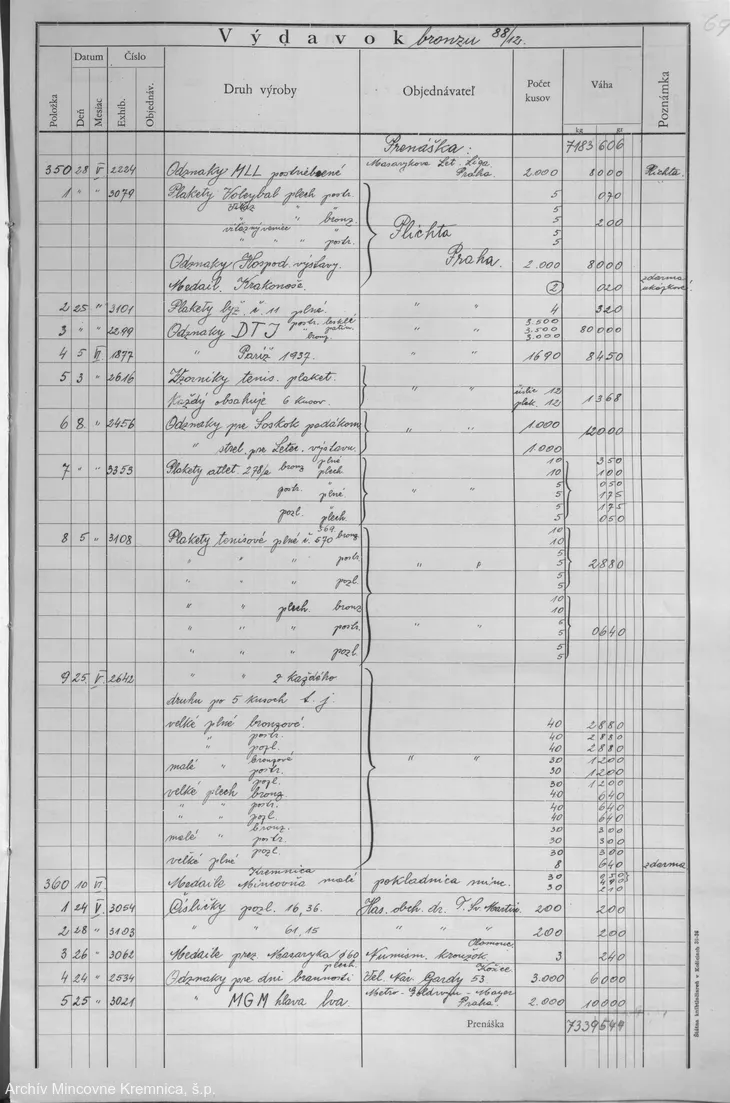 Výdavok bronzu 88/12.
Položka
Datum
Deň
Mesiac
Číslo
Exhib.
Objednáv.
Druh výroby
Objednávateľ
Počet kusov
Váha
kg gr
Poznámka
Prenáška: 7183 606
350 28 VI 2224 Odznaky MLL postriebrené Masarykova Let. Liga Praha 2.000 8000 Plichta
1 " " 3079 Plakety Voleybal plech postr. 5 070
" " bronz 5 200
" " " postr. 5
Plichta
Praha
Odznaky Hospod. výstavy. 2.000 8000
Medail. Krakonoše. 2 020 zdarma ukážkové
2 25 " 3101 Plakety lyž. č. 11 plné. " " 4 320
3 " " 2299 Odznaky DTJ postr. lesklé patin. bronz. " " 3.500 3.500 3.000 80000
4 5 VI 1877 " Paríž 1937. " " 1690 8450
5 3 " 2616 Vzorníky tenis. plaket.
Každý obsahuje 6 kusov. " " 12 plak. 12 1368
6 8. " 2456 Odznaky pre Soskok padákom " " 1.000 12000
" strel. pre Letec. výstavu. 1.000
7 " " 3353 Plakety atlet. 278/2 bronz plné 10 350
plech 10 100
postr. " 5 050
plné. " " 5 175
pozl. " 5 175
plech. 5 050
8 5 " 3108 Plakety tenisové plné č. 569 570 bronz. 10 10
" " " postr. " " 5 5 2880
" " " pozl. 5 5
" " plech. bronz 10 10
" " " postr. " " 5 5 0640
" " " pozl. 5 5
9 25 VI. 2642 " " z každého
druhu po 5 kusoch t. j.
veľké plné bronzové. 40 2880
" postr. 40 2880
" pozl. 40 2880
malé " bronzové " " 30 1200
postr. 30 1200
pozl. 30 1200
veľké plech bronz 40 640
" " postr. 40 640
" " pozl. 40 640
malé " bronz. 30 300
" postr. 30 300
pozl. 30 300
veľké plné 8 640 zdarma
360 10 VI. Medaile Kremnica Mincovňa malé pokladnica minc. 30 30 210
1 24 VI. 3054 Čísličky pozl. 16, 36. Has. obch. dr. T. Sv. Martin 200 200
2 28 " 3103 " " 61, 15 200 200
3 26 " 3062 Medaile prez Masaryka φ60 Numism. kroužok Olomouc 3 240
4 24 " 2534 Odznaky pre dni brannosti plech. Vel. Nár. Gardy 53 Košice 3.000 6000
5 25 " 3021 " MGM hlava lva. Metro-Goldvyn-Mayer Praha. 2.000 10000
Prenáška 7339544
Štátne knihtlačiarne v Košiciach
Archív Mincovne Kremnica, š.p.